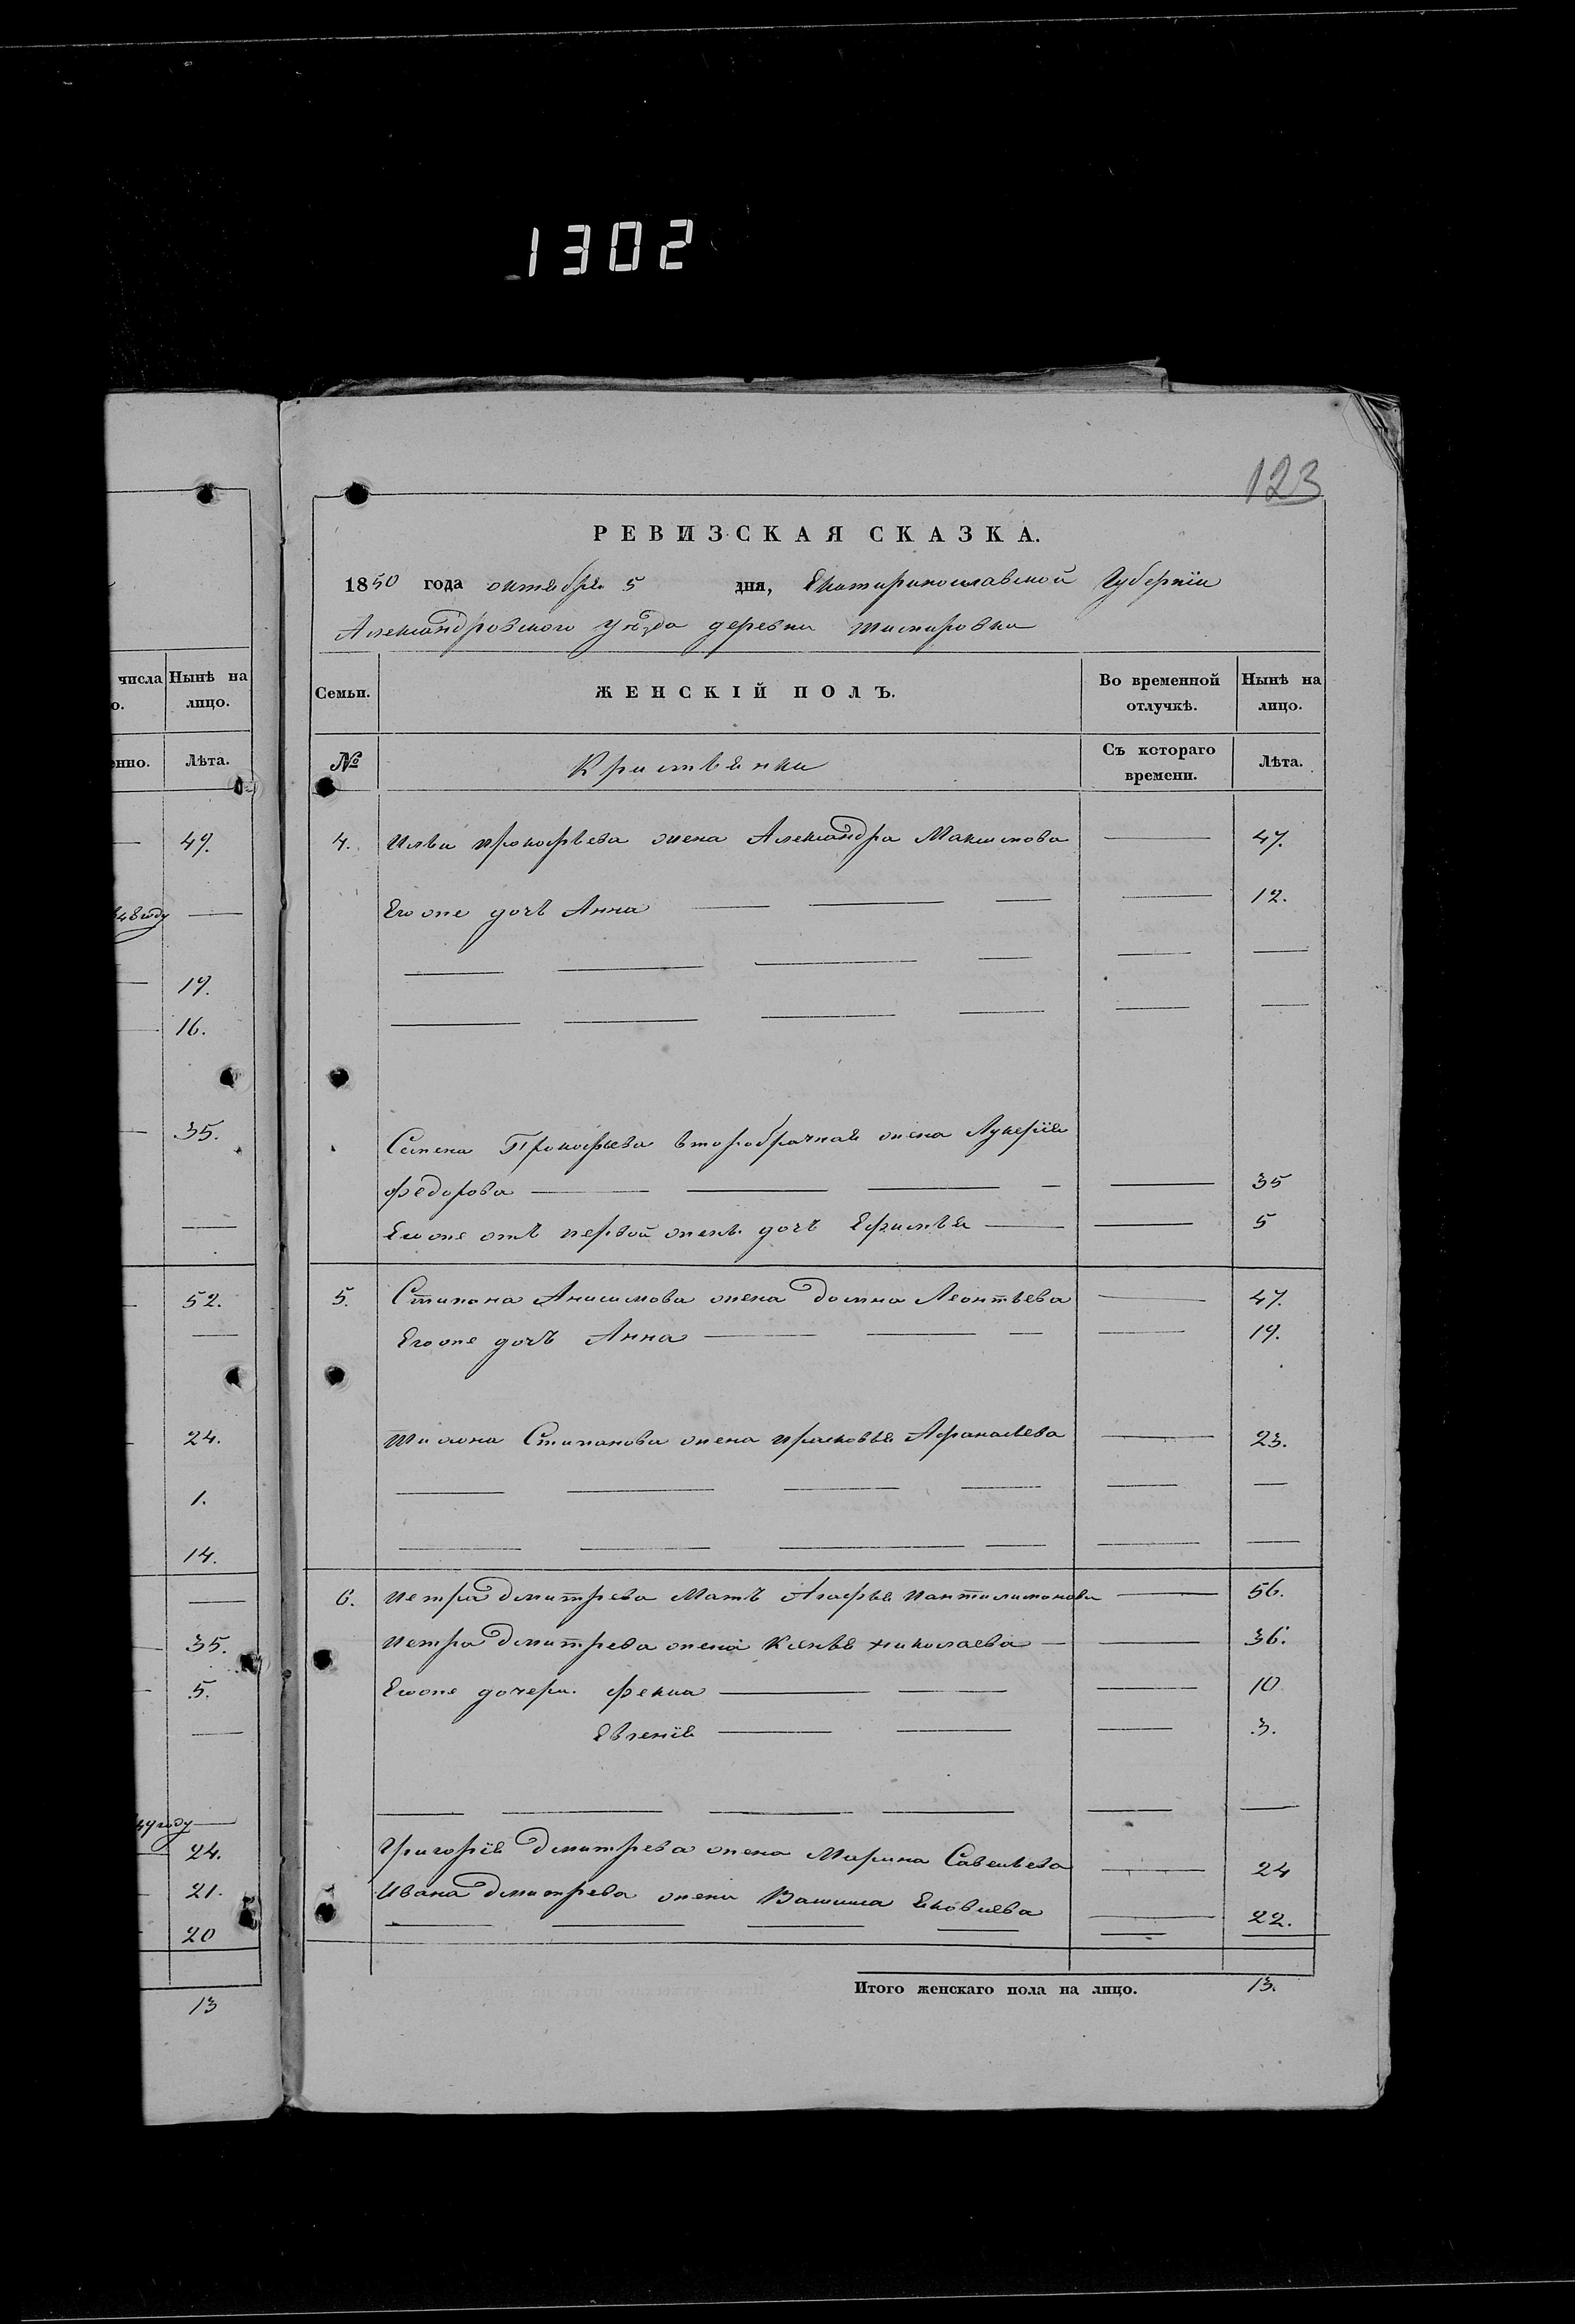 1302
123
РЕВИЗСКАЯ СКАЗКА.
1850 года октября 5 дня, Екатиринославской Губернїи
Александровского уѣзда деревни
числа Нынѣ на лицо.
о.
енно. Лѣта.
49.
848 году
19.
16.
35.
52.
24.
1.
14.
35.
5.
49 году
24.
21.
20
13
Семьи. ЖЕНСКІЙ ПОЛЪ. Во временной отлучкѣ. Нынѣ на лицо.
№ Кристьянки Съ котораго времени. Лѣта.
4. Ильи Прокофьева жена Александра Максимова 47.
Его же дочь Анна 12.
Семена Прокофьева второбрачная жена Лукерїя
Федорова 35
Его же отъ первой жены дочь Ефимья 5
5. Стипана Анисимова жена Домна Леонтьева 47.
Его же дочь Анна 19.
Стипанова жена Прасковья Афанасьева 23.
6. Петра Дмитрева Мать Агафья Пантилимонова 56.
Петра Дмитрева жена Николаева 36.
Его же дочери. Фекла 10
Евгенїя 3.
Григорїя Дмитрева жена Марина Савельева 24
Ивана Дмитрева жена Яковлева 22.
Итого женскаго пола на лицо. 13.